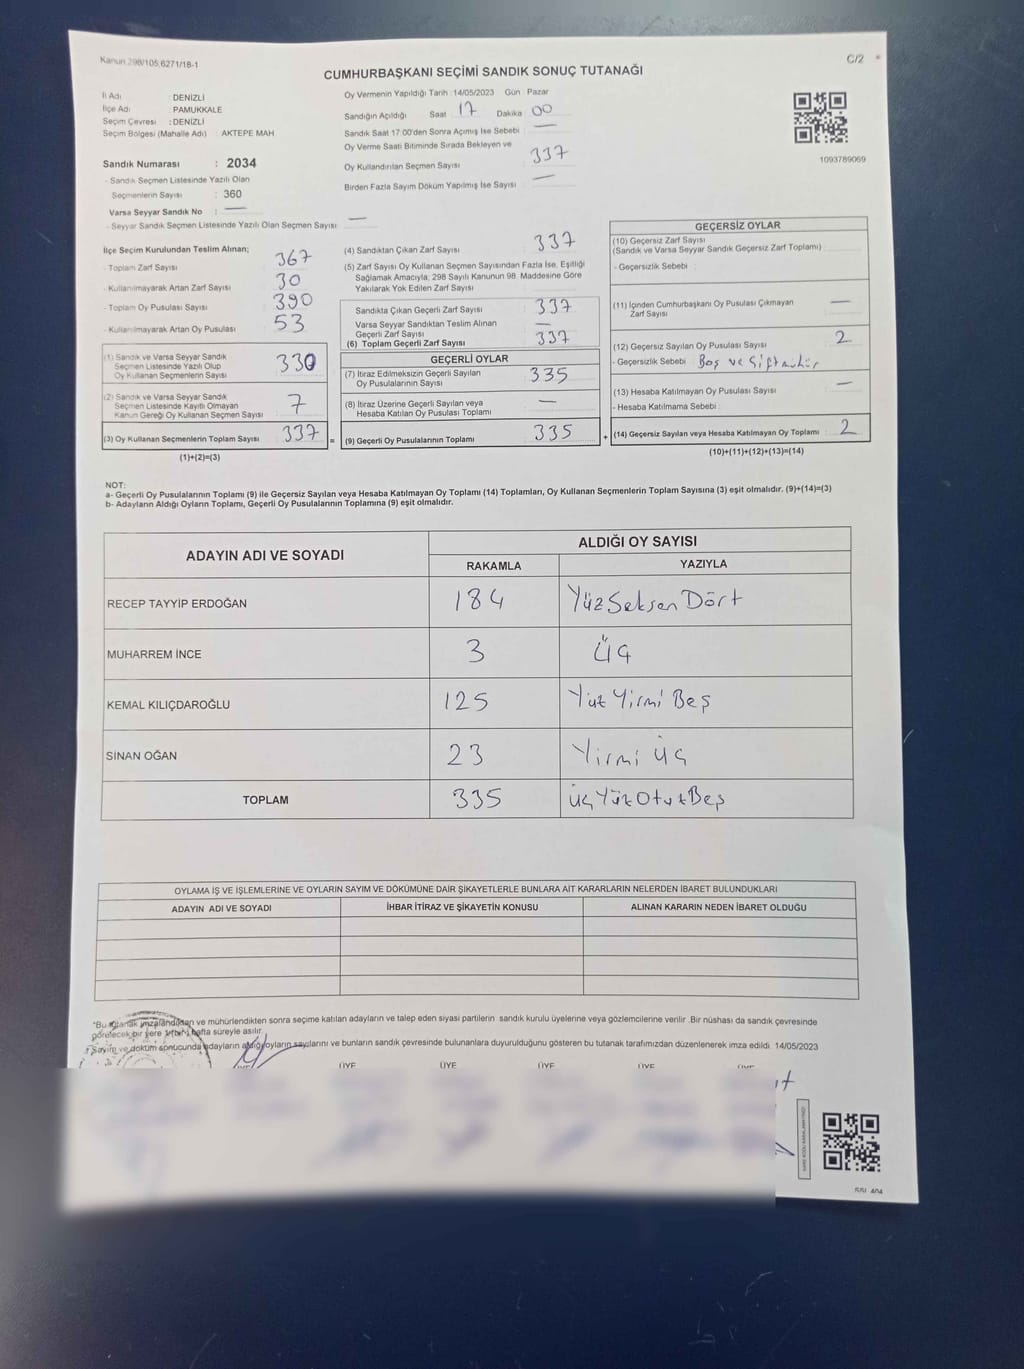 Kanun 298/105,6271/18-1
C/2
CUMHURBAŞKANI SEÇİMİ SANDIK SONUÇ TUTANAĞI
İl Adı : DENİZLİ
İlçe Adı : PAMUKKALE
Seçim Çevresi : DENİZLİ
Seçim Bölgesi (Mahalle Adı) : AKTEPE MAH.
Sandık Numarası : 2034
- Sandık Seçmen Listesinde Yazılı Olan
Seçmenlerin Sayısı : 360
Varsa Seyyar Sandık No : —
- Seyyar Sandık Seçmen Listesinde Yazılı Olan Seçmen Sayısı : —
Oy Vermenin Yapıldığı Tarih : 14/05/2023 Gün : Pazar
Sandığın Açıldığı Saat : 17 Dakika : 00
Sandık Saat 17:00'den Sonra Açımış İse Sebebi : —
Oy Verme Saati Bitiminde Sırada Bekleyen ve
Oy Kullandırılan Seçmen Sayısı : 337
Birden Fazla Sayım Döküm Yapılmış İse Sayısı : —
1093789069
İlçe Seçim Kurulundan Teslim Alınan;
- Toplam Zarf Sayısı : 367
- Kullanılmayarak Artan Zarf Sayısı : 30
- Toplam Oy Pusulası Sayısı : 390
- Kullanılmayarak Artan Oy Pusulası : 53
(1) Sandık ve Varsa Seyyar Sandık
Seçmen Listesinde Yazılı Olup
Oy Kullanan Seçmenlerin Sayısı : 330
(2) Sandık ve Varsa Seyyar Sandık
Seçmen Listesinde Kayıtlı Olmayan
Kanun Gereği Oy Kullanan Seçmen Sayısı : 7
(3) Oy Kullanan Seçmenlerin Toplam Sayısı : 337
(1)+(2)=(3)
=
(4) Sandıktan Çıkan Zarf Sayısı : 337
(5) Zarf Sayısı Oy Kullanan Seçmen Sayısından Fazla İse, Eşitliği
Sağlamak Amacıyla; 298 Sayılı Kanunun 98. Maddesine Göre
Yakılarak Yok Edilen Zarf Sayısı :
Sandıkta Çıkan Geçerli Zarf Sayısı : 337
Varsa Seyyar Sandıktan Teslim Alınan
Geçerli Zarf Sayısı : —
(6) Toplam Geçerli Zarf Sayısı : 337
GEÇERLİ OYLAR
(7) İtiraz Edilmeksizin Geçerli Sayılan
Oy Pusulalarının Sayısı : 335
(8) İtiraz Üzerine Geçerli Sayılan veya
Hesaba Katılan Oy Pusulası Toplamı : —
(9) Geçerli Oy Pusulalarının Toplamı : 335
+
GEÇERSİZ OYLAR
(10) Geçersiz Zarf Sayısı
(Sandık ve Varsa Seyyar Sandık Geçersiz Zarf Toplamı) :
- Geçersizlik Sebebi :
(11) İçinden Cumhurbaşkanı Oy Pusulası Çıkmayan
Zarf Sayısı : —
(12) Geçersiz Sayılan Oy Pusulası Sayısı : 2
- Geçersizlik Sebebi : Boş ve Çift mühür
(13) Hesaba Katılmayan Oy Pusulası Sayısı : —
- Hesaba Katılmama Sebebi :
(14) Geçersiz Sayılan veya Hesaba Katılmayan Oy Toplamı : 2
(10)+(11)+(12)+(13)=(14)
NOT:
a- Geçerli Oy Pusulalarının Toplamı (9) ile Geçersiz Sayılan veya Hesaba Katılmayan Oy Toplamı (14) Toplamları, Oy Kullanan Seçmenlerin Toplam Sayısına (3) eşit olmalıdır. (9)+(14)=(3)
b- Adayların Aldığı Oyların Toplamı, Geçerli Oy Pusulalarının Toplamına (9) eşit olmalıdır.
ADAYIN ADI VE SOYADI
ALDIĞI OY SAYISI
RAKAMLA YAZIYLA
RECEP TAYYİP ERDOĞAN 184 YüzSeksenDört
MUHARREM İNCE 3 Üç
KEMAL KILIÇDAROĞLU 125 Yüz Yirmi Beş
SİNAN OĞAN 23 Yirmi üç
TOPLAM 335 üçYüzOtuzBeş
OYLAMA İŞ VE İŞLEMLERİNE VE OYLARIN SAYIM VE DÖKÜMÜNE DAİR ŞİKAYETLERLE BUNLARA AİT KARARLARIN NELERDEN İBARET BULUNDUKLARI
ADAYIN ADI VE SOYADI İHBAR İTİRAZ VE ŞİKAYETİN KONUSU ALINAN KARARIN NEDEN İBARET OLDUĞU
*Bu tutanak imzalandıktan ve mühürlendikten sonra seçime katılan adayların ve talep eden siyasi partilerin sandık kurulu üyelerine veya gözlemcilerine verilir. Bir nüshası da sandık çevresinde
görülecek bir yere 1(bir) hafta süreyle asılır.
*Sayım ve döküm sonucunda adayların aldığı oyların sayılarını ve bunların sandık çevresinde bulunanlara duyurulduğunu gösteren bu tutanak tarafımızdan düzenlenerek imza edildi. 14/05/2023
ÜYE ÜYE ÜYE ÜYE